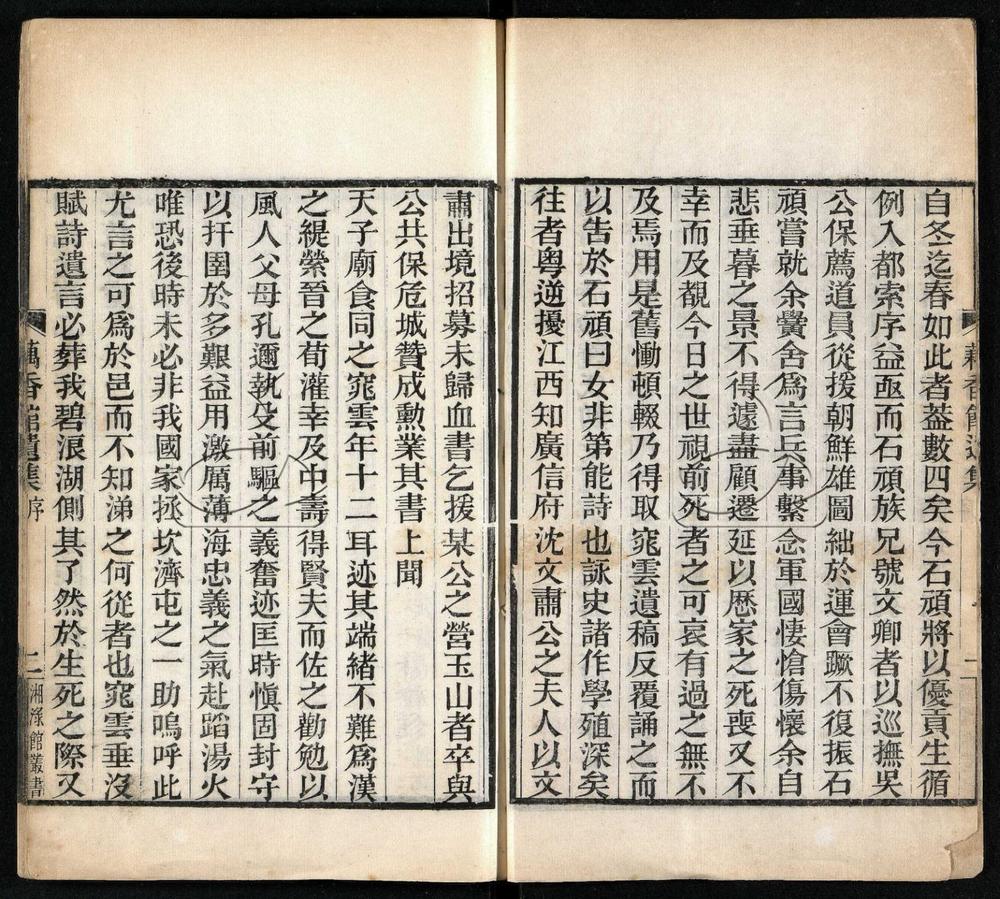 自冬迄春如此者葢數四矣今石頑將以優貢生循
例入都索序益亟而石頑族兄號文卿者以巡撫吳
公保薦道員從援朝鮮雄圖絀於運會蹶不復振石
頑嘗就余黌舍爲言兵事繫念軍國悽愴傷懷余自
悲垂暮之景不得遽盡顧遷延以歷家之死喪又不
幸而及覩今日之世視前死者之可哀有過之無不
及焉用是舊慟頓輟乃得取窕雲遺稿反覆誦之而
以告於石頑曰女非第能詩也詠史諸作學殖深矣
往者粵逆擾江西知廣信府沈文肅公之夫人以文
肅出境招募未歸血書乞援某公之營玉山者卒與
公共保危城贊成勲業其書上聞
天子廟食同之窕雲年十二耳迹其端緒不難爲漢
之緹縈晉之荀灌幸及中壽得賢夫而佐之勸勉以
風人父母孔邇執殳前驅之義奮迹匡時愼固封守
以扞圉於多艱益用激厲薄海忠義之氣赴蹈湯火
唯恐後時未必非我國家拯坎濟屯之一助嗚呼此
尤言之可爲於邑而不知涕之何從者也窕雲垂沒
賦詩遺言必葬我碧浪湖側其了然於生死之際又
香館遺集 序 二 湘淥館叢書